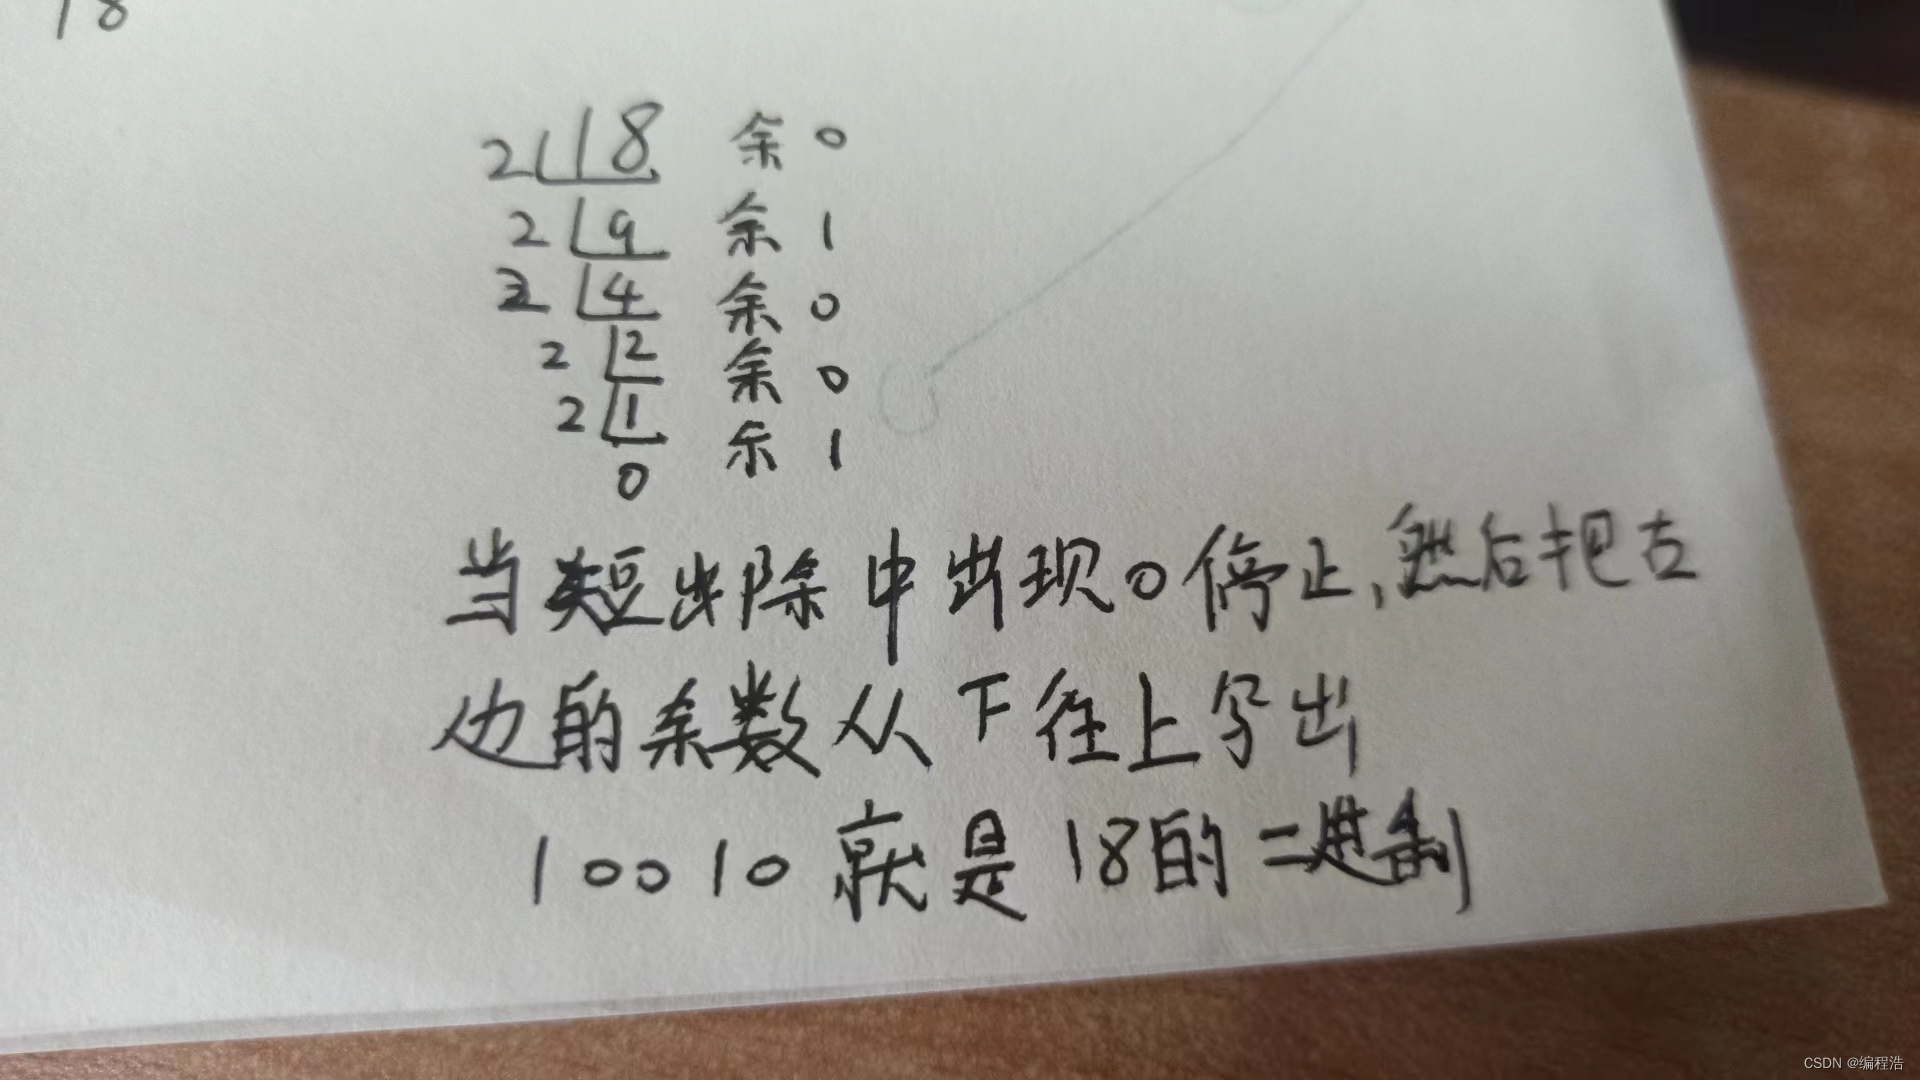 18
2 18 余 0
2 9 余 1
2 4 余 0
2 2 余 0
2 1 余 1
0
当短出除中出现0停止,然后把左
边的余数从下往上写出
10010就是18的二进制
CSDN @编程浩